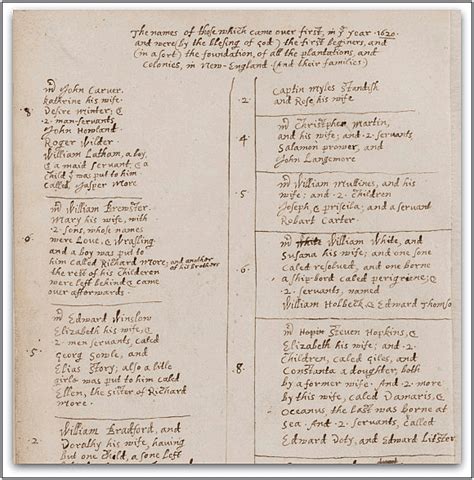 The names of those which came over first, in yᵉ year .1620.
and were (by the blesing of god) the first beginers, and
(in a sort) the foundation, of all the plantations, and
Colonies, in New-England. (And their families)
8
mr John Carver.
kathrine his wife.
Desire Minter; &
.2. man-servants
John Howland
Roger Wilder.
William Latham, a boy.
& a maid servant, & a
child yt was put to him
called, Jasper More
6
mr William Brewster.
Mary his wife, with
.2. sons, whose names
were Love, & Wrasling
and a boy was put to
him called Richard More; and another
of his brothers
the rest of his Childeren
were left behind & came
over afterwards.
.5.
mr Edward Winslow
Elizabeth his wife, &
.2. men servants, caled
Georg Sowle, and
Elias Story; also a litle
girle was put to him caled
Ellen, the sister of Richard
More.
.2.
William Bradford, and
Dorathy his wife, having
but one child, a sone left
.2.
Captin Myles Standish
and Rose his wife
4
mr Christopher Martin,
and his wife; and .2. servants,
Salamon prower, and
John Langemore
.5.
mr William Mullines, and his
wife; and .2. Children
Joseph, & priscila; and a servant
Robart Carter.
.6.
mr White William White, and
Susana his wife; and one sone
caled resolved, and one borne
a ship-bord caled perigriene; &
.2. servants, named
William Holbeck, & Edward Thomson
.8.
mr Hopin Steven Hopkins, &
Elizabeth his wife; and .2.
Children, caled Giles, and
Constanta a doughter, both
by a former wife. And .2. more
by this wife, caled Damaris, &
Oceanus, the last was borne at
sea. And .2. servants, called
Edward Doty, and Edward Litster